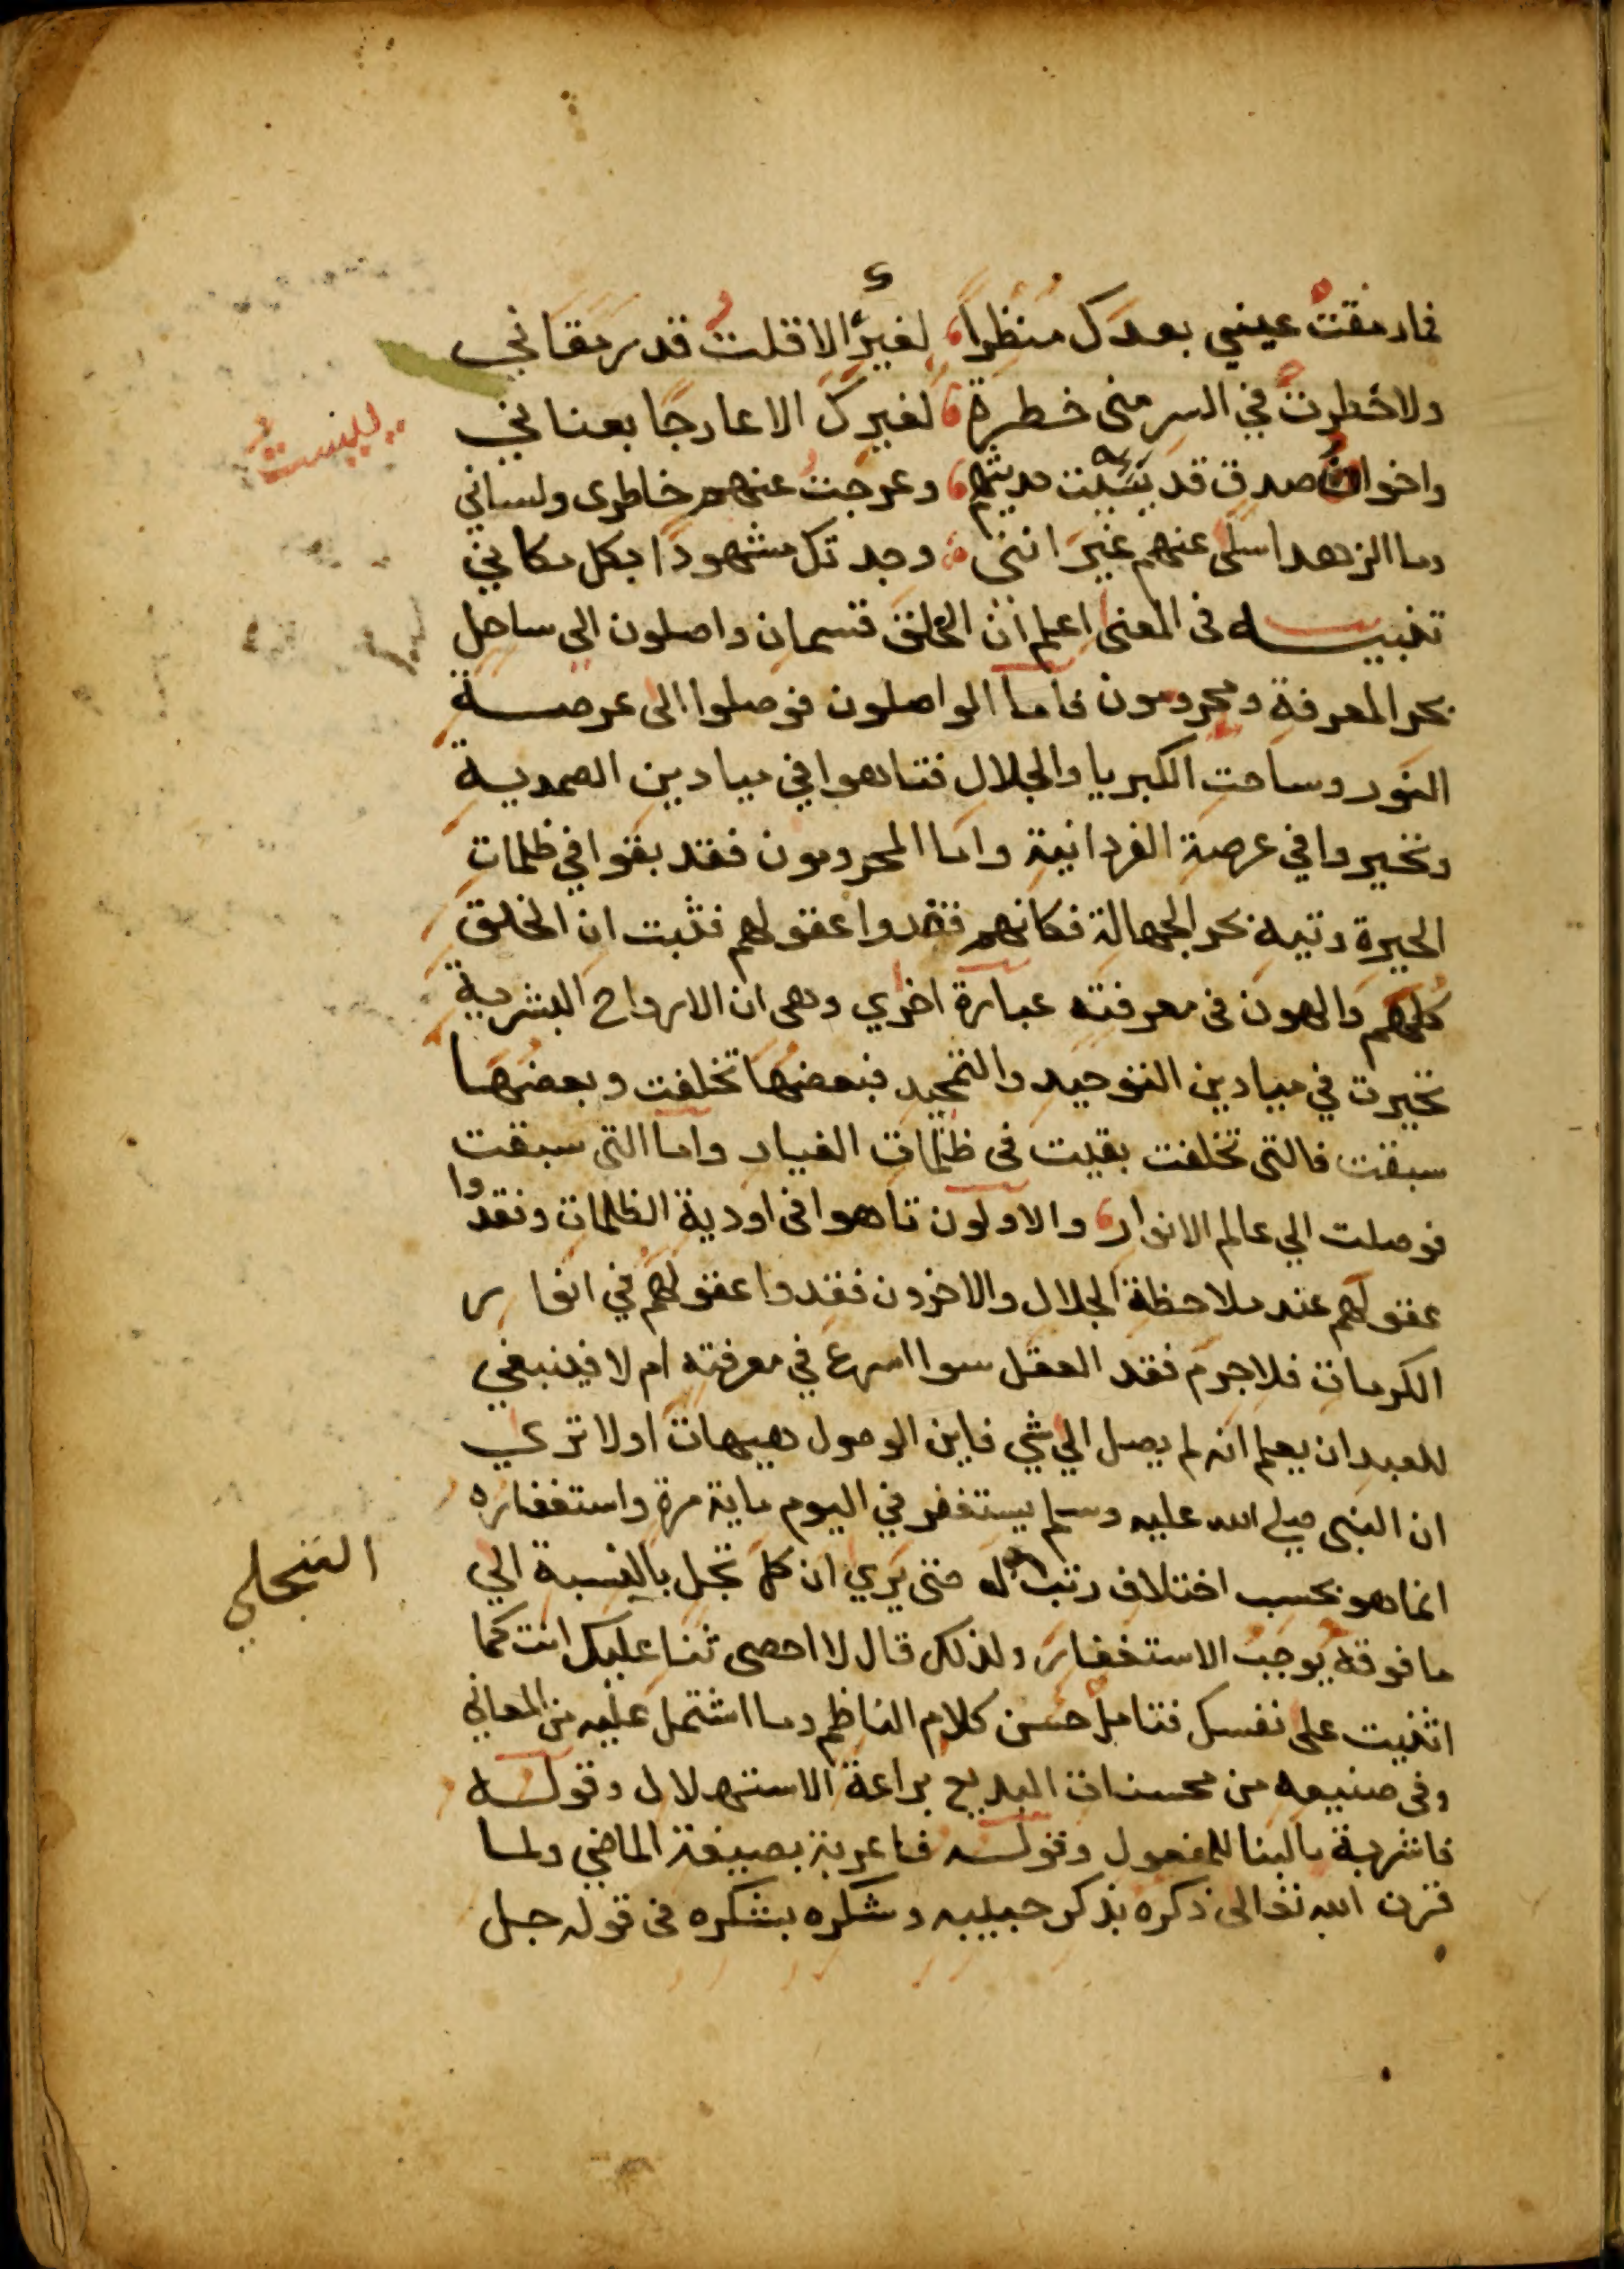 فما رمقت عيني بعدك منظرا لغيرك الا قلت قد رمقاني
ولا خطرت في السر منى خطرة لغيرك الا عارجا بعناني
واخوان صدق قد يئست حديثهم وعرجت عنهم خاطرى ولساني
وما الزهد اسلى عنهم غير اننى وجدتك مشهودا بكل مكاني
تنبيه فى المعنى اعلم ان الخلق قسمان واصلون الى ساحل
بحر المعرفة ومحرومون فاما الواصلون فوصلوا الى عرصة
النور وساحت الكبريا والجلال فتاهوا في ميادين الصمدية
وتحيروا في عرصة الفردانية واما المحرومون فقد بقوا في ظلمات
الحيرة وتيه بحر الجهالة فكانهم فقدوا عقولهم فثبت ان الخلق
كلهم والهون فى معرفته عبارة اخري وهى ان الارواح البشرية
تحيرت في ميادين التوحيد والتمجيد فبعضها تخلفت وبعضها
سبقت فالتى تخلفت بقيت فى ظلمات الغيار واما التى سبقت
فوصلت الي عالم الانوار والاولون تاهوا فى اودية الظلمات وفقدوا
عقولهم عند ملاحظة الجلال والاخرون فقدوا عقولهم في انوار
الكرمات فلا جرم فقد العقل سوا اسرع في معرفته ام لا فينبغي
للعبد ان يعلم انه لم يصل الي شي فاين الوصول هيهات اولا تري
ان النبى صلى الله عليه وسلم يستغفر في اليوم ماية مرة واستغفاره
انما هو بحسب اختلاف رتب له متى يري ان كل تجل بالنسبة الي
التجلي
ما فوقه يوجب الاستغفار ولذلك قال لا احصى ثنا عليك انت كما
اثنيت على نفسك فتامل حسن كلام الناظم وما اشتمل عليه من المعاني
وفى صنيعه من محسنات البديع براعة الاستهلال وقوله
فاشربة بالبنا للمفعول وقوله فاعربة بصيغة الماضي ولما
قرن الله تعالى ذكره بذكر حبيبه وشكره بشكره فى قوله جل